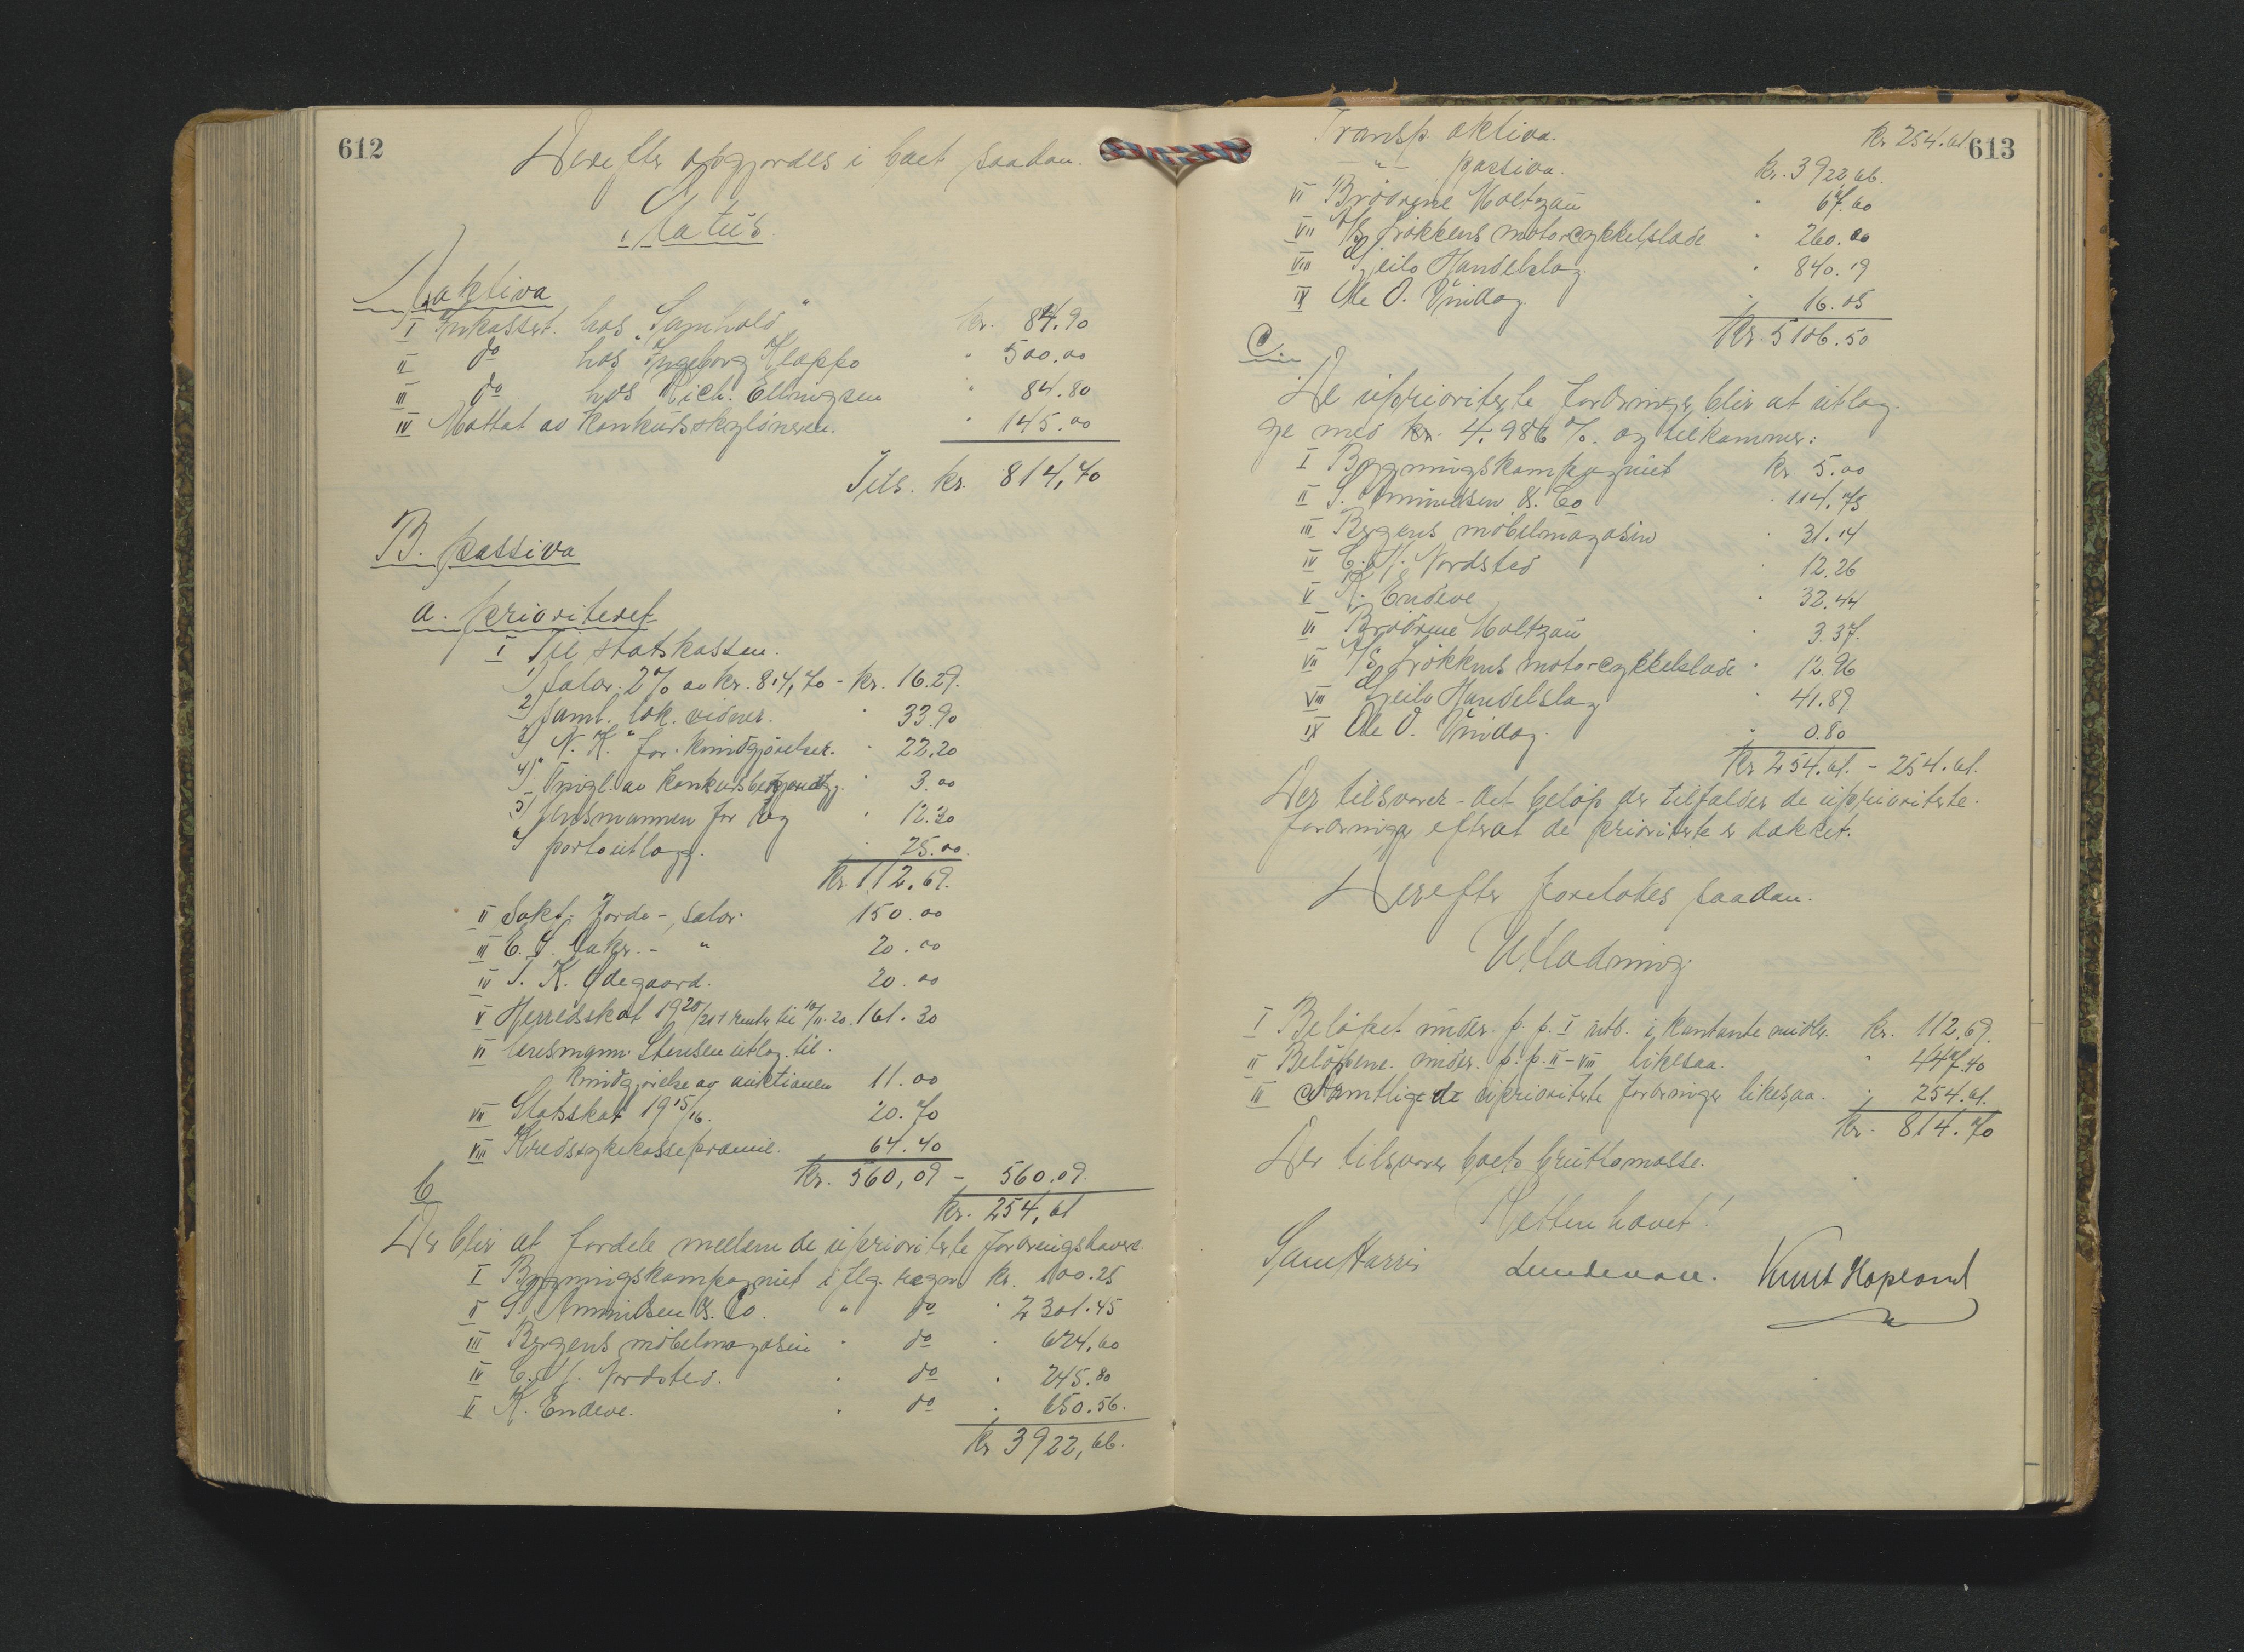 612
Derefter opgjordes i boet saadan.
Status.
A. aktiva
I Inkasset. hos "Samhold" kr. 84.90
II do hos Ingeborg Kloppo " 500.00
III do hos Rich. Ellingsen " 84.80
IV Mottat av konkursskyldneren. " 145.00
Tils. kr. 814,70
B. passiva
a. prioritert
I Til statskassen.
1) Salær. 2% av kr. 814,70 - kr. 16.29.
2) Saml. lok. vidner. " 33.90
3) "N. K." for kundgjørelser. " 22.20
4) Tingl. av konkursbegjæring. " 3.00
5) lensmannen for " 12.30
6) portoutlæg. " 25.00
Kr. 112.69.
II Sakf. Jorde -, salær. 150.00
III C. S. Aaker. - " 20.00
IV T. K. Ødegaard. 20.00
V Herredsskat 1920/21 + renter til 10/11-20. 161.30
VI lensmann Stensen utlæg til
kundgjørelse av auktionen 11.00
VII Statsskat 1915/16. 20.70
VIII Kredssykekassepræmie. 64.40
Kr. 560,09 - 560.09.
kr. 254,61
b
Der blir at fordele mellem de uprioriterte fordringshavere.
I Bygningskompagniet iflg. regn. kr. 100.25
II S. Amundsen & Co. " do " 2301.45
III Bergens møbelmagasin " do " 624.60
IV C. M. Nordsted. " do " 245.80
V K. Endeve. " do " 650.56.
Kr 3922,66.
613
Transp. aktiva. kr. 254.61
-"- passiva. kr. 3922.66.
VI Brødrene Holtzau " 67.60
VII A/S Løkkens motorcykkelslade " 260.00
VIII Geilo Handelslag. " 840.19
IX Ole O. Undag. " 16.05
Kr. 5106.50
C
De uprioriterte fordringer blir at utlæg-
ge med kr. 4.986 %. og tilkommer:
I Bygningskompagniet kr 5.00
II S. Amundsen & Co " 114.75
III Bergens møbelmagasin " 31.14
IV C. M. Nordsted " 12.26
V K. Endeve " 32.44
VI Brødrene Holtzau " 3.37.
VII A/S Løkkens motorcykkelslade " 12.96
VIII Geilo Handelslag " 41.89
IX Ole O. Undag. " 0.80
Kr 254.61. - 254.61.
Der tilsvarer det beløp der tilfalder de uprioriterte
fordringer efterat de prioriterte er dækket.
Derefter foretokes saadan.
Utlodning.
I Beløpet under. p. p. I utb. i kontante midler. kr. 112.69.
II Beløpene. under. p. p. II-VIII likesaa. " 447.40
III Samtlige de uprioriterte fordringer likesaa. " 254.61.
Kr. 814.70
Der tilsvarer boets bruttomasse.
Retten hævet!
Sam Harris Knut Hopland